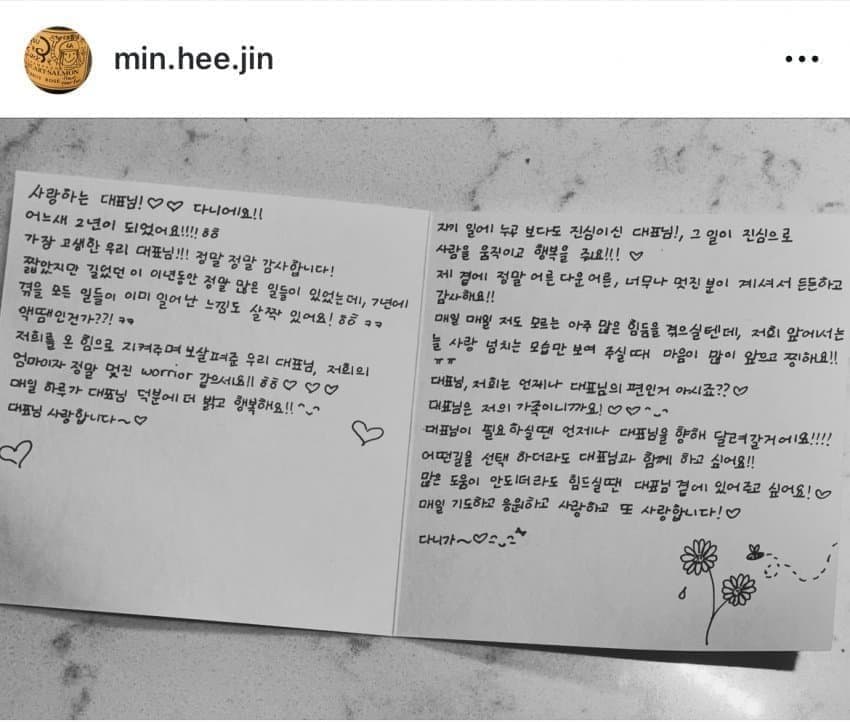 min.hee.jin
사랑하는 대표님!♡♡ 다니에요!!
어느새 2년이 되었어요!!!! ㅎㅎ
가장 고생한 우리 대표님!!! 정말 정말 감사합니다!
짧았지만 길었던 이 이년동안 정말 많은 일들이 있었는데, 7년에
겪을 모든 일들이 이미 일어난 느낌도 살짝 있어요! ㅎㅎ ㅋㅋ
액땜인건가??! ㅋㅋ
저희를 온 힘으로 지켜주며 보살펴준 우리 대표님, 저희의
엄마이자 정말 멋진 worrior 같으세요!! ㅎㅎ♡ ♡ ♡
매일 하루가 대표님 덕분에 더 밝고 행복해요!! ^_^
대표님 사랑합니다~♡
자기 일에 누구 보다도 진심이신 대표님!, 그 일이 진심으로
사람을 움직이고 행복을 줘요!!! ♡
제 곁에 정말 어른 다운 어른, 너무나 멋진 분이 계셔서 든든하고
감사해요!!
매일 매일 저도 모르는 아주 많은 힘듦을 겪으실텐데, 저희 앞에서는
늘 사랑 넘치는 모습만 보여 주실 때 마음이 많이 아프고 찡해요!!
ㅠㅠ
대표님, 저희는 언제나 대표님의 편인거 아시죠??♡
대표님은 저의 가족이니까요! ♡♡ ^_^
대표님이 필요 하실땐 언제나 대표님을 향해 달려갈거에요!!!!
어떤길을 선택 하더라도 대표님과 함께 하고 싶어요!!
많은 도움이 안되더라도 힘드실땐 대표님 곁에 있어주고 싶어요!♡
매일 기도하고 응원하고 사랑하고 또 사랑합니다!♡
다니가~♡